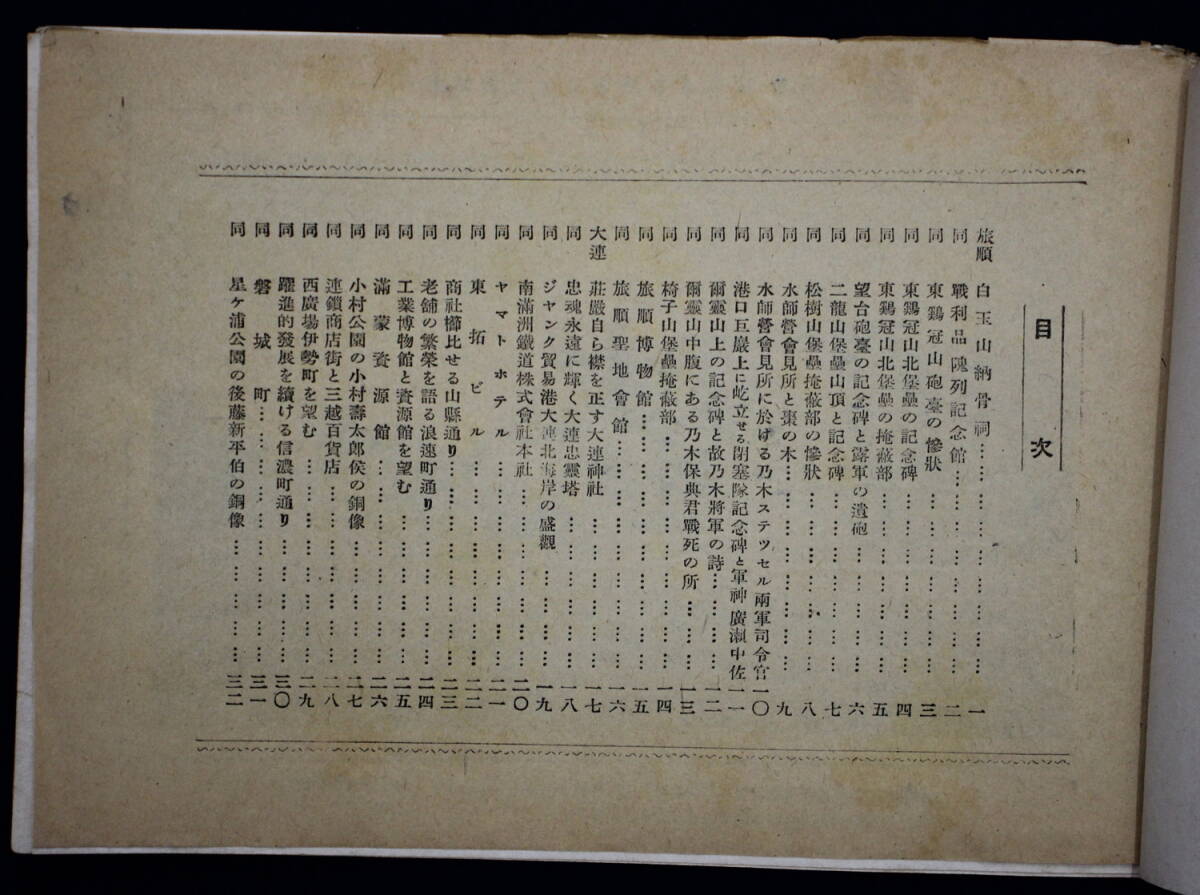 目次
旅順 白玉山納骨祠…………………………一
同 戰利品陳列記念館…………………………二
同 東鷄冠山砲臺の慘狀…………………………三
同 東鷄冠山北堡壘の記念碑…………………………四
同 東鷄冠山北堡壘の掩蔽部…………………………五
同 望台砲臺の記念碑と露軍の遺砲…………………………六
同 二龍山堡壘山頂と記念碑…………………………七
同 松樹山堡壘掩蔽部の慘狀…………………………八
同 水師營會見所と棗の木…………………………九
同 水師營會見所に於ける乃木ステツセル兩軍司令官 一〇
同 港口巨巖上に屹立せる閉塞隊記念碑と軍神廣瀨中佐 一一
同 爾靈山上の記念碑と故乃木將軍の詩…………一二
同 爾靈山中腹にある乃木保典君戰死の所…………一三
同 椅子山堡壘掩蔽部…………………………一四
同 旅順博物館…………………………一五
同 旅順聖地會館…………………………一六
大連 莊嚴自ら襟を正す大連神社…………………………一七
同 忠魂永遠に輝く大連忠靈塔…………………………一八
同 ジヤンク貿易港大連北海岸の盛觀…………………………一九
同 南滿洲鐵道株式會社本社…………………………二〇
同 ヤマトホテル…………………………二一
同 東拓ビル…………………………二二
同 商社櫛比せる山縣通り…………………………二三
同 老舖の繁榮を語る浪速町通り…………………………二四
同 工業博物館と資源館を望む…………………………二五
同 滿蒙資源館…………………………二六
同 小村公園の小村壽太郎侯の銅像…………………………二七
同 連鎖商店街と三越百貨店…………………………二八
同 西廣場伊勢町を望む…………………………二九
同 躍進的發展を續ける信濃町通り…………………………三〇
同 磐城町…………………………三一
同 星ケ浦公園の後藤新平伯の銅像…………………………三二